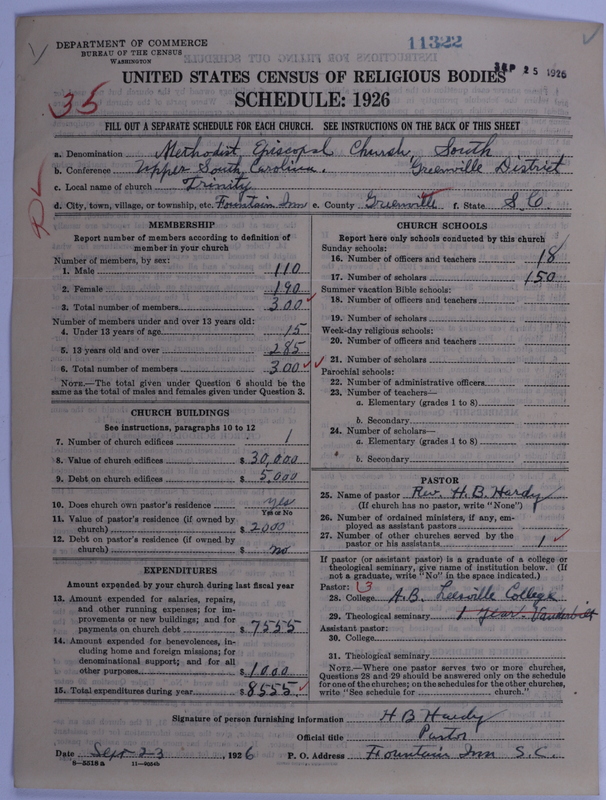 DEPARTMENT OF COMMERCE
BUREAU OF THE CENSUS
WASHINGTON
11322
SEP 25 1926
UNITED STATES CENSUS OF RELIGIOUS BODIES
SCHEDULE: 1926
35
FILL OUT A SEPARATE SCHEDULE FOR EACH CHURCH. SEE INSTRUCTIONS ON THE BACK OF THIS SHEET
a. Denomination Methodist Episcopal Church, South
b. Conference Upper South Carolina. Greenville District
c. Local name of church Trinity
d. City, town, village, or township, etc. Fountain Inn e. County Greenville f. State S.C.
MEMBERSHIP
Report number of members according to definition of
member in your church
Number of members, by sex:
1. Male 110
2. Female 190
3. Total number of members 300
Number of members under and over 13 years old:
4. Under 13 years of age 15
5. 13 years old and over 285
6. Total number of members 300
NOTE.—The total given under Question 6 should be the
same as the total of males and females given under Question 3.
CHURCH BUILDINGS
See instructions, paragraphs 10 to 12
7. Number of church edifices 1
8. Value of church edifices $ 30,000
9. Debt on church edifices $ 5,000
10. Does church own pastor's residence yes
Yes or No
11. Value of pastor's residence (if owned by
church) $ 2000
12. Debt on pastor's residence (if owned by
church) $ no
EXPENDITURES
Amount expended by your church during last fiscal year
13. Amount expended for salaries, repairs,
and other running expenses; for im-
provements or new buildings; and for
payments on church debt $ 7555
14. Amount expended for benevolences, in-
cluding home and foreign missions; for
denominational support; and for all
other purposes $ 1000
15. Total expenditures during year $ 8555
CHURCH SCHOOLS
Report here only schools conducted by this church
Sunday schools:
16. Number of officers and teachers 18
17. Number of scholars 150
Summer vacation Bible schools:
18. Number of officers and teachers
19. Number of scholars
Week-day religious schools:
20. Number of officers and teachers
21. Number of scholars
Parochial schools:
22. Number of administrative officers
23. Number of teachers—
a. Elementary (grades 1 to 8)
b. Secondary
24. Number of scholars—
a. Elementary (grades 1 to 8)
b. Secondary
PASTOR
25. Name of pastor Rev. H. B. Hardy
(If church has no pastor, write "None")
26. Number of ordained ministers, if any, em-
ployed as assistant pastors
27. Number of other churches served by the
pastor or his assistants 1
If pastor (or assistant pastor) is a graduate of a college or
theological seminary, give name of institution below. (If
not a graduate, write "No" in the space indicated.)
Pastor: 3
28. College A.B. Leesville College
29. Theological seminary 1 Year - Vanderbilt
Assistant pastor:
30. College
31. Theological seminary
NOTE.—Where one pastor serves two or more churches,
Questions 28 and 29 should be answered only on the schedule
for one of the churches; on the schedules for the other churches,
write "See schedule for church."
Signature of person furnishing information H B Hardy
Official title Pastor
Date Sept 23, 1926 P. O. Address Fountain Inn S.C.
8-5518a 11-9054b